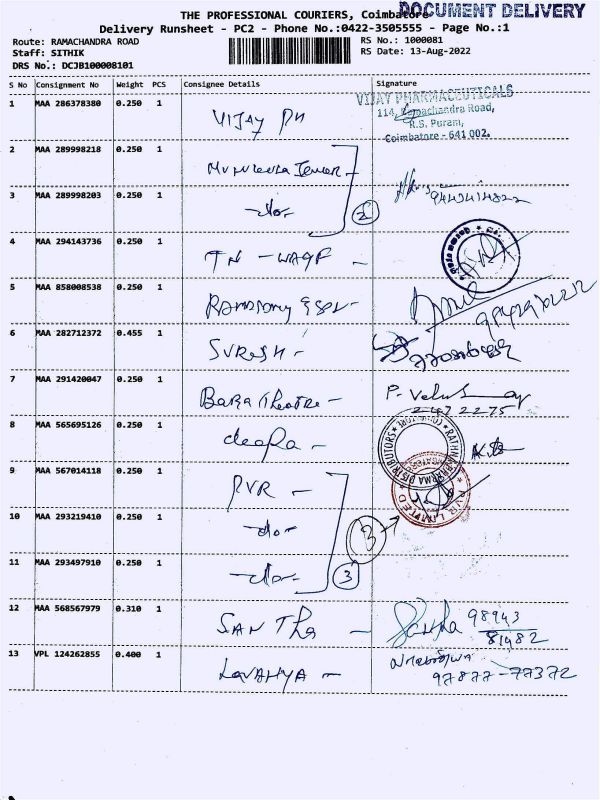 THE PROFESSIONAL COURIERS, Coimbatore
DOCUMENT DELIVERY
Delivery Runsheet - PC2 - Phone No.:0422-3505555 - Page No.:1
Route: RAMACHANDRA ROAD
RS No.: 1000081
Staff: SITHIK
RS Date: 13-Aug-2022
DRS No.: DCJB100008101
S No Consignment No Weight PCS Consignee Details Signature
VIJAY PHARMACEUTICALS
114, Ramachandra Road,
R.S. Puram,
Coimbatore - 641 002.
1 MAA 286378380 0.250 1 Vijay PH
2 MAA 289998218 0.250 1
3 MAA 289998203 0.250 1 -do- 2
4 MAA 294143736 0.250 1 TN - WAQF -
5 MAA 858008538 0.250 1
6 MAA 282712372 0.455 1 SURESH -
7 MAA 291420047 0.250 1 Theatre -
P. Velusamy
247 2275
8 MAA 565695126 0.250 1 deepa -
9 MAA 567014118 0.250 1 PVR -
10 MAA 293219410 0.250 1 -do- 3
11 MAA 293497910 0.250 1 -do- 3
12 MAA 568567979 0.310 1 SANTha - Santha 98943
81482
13 VPL 124262855 0.400 1 LAVANYA -
97877-77372